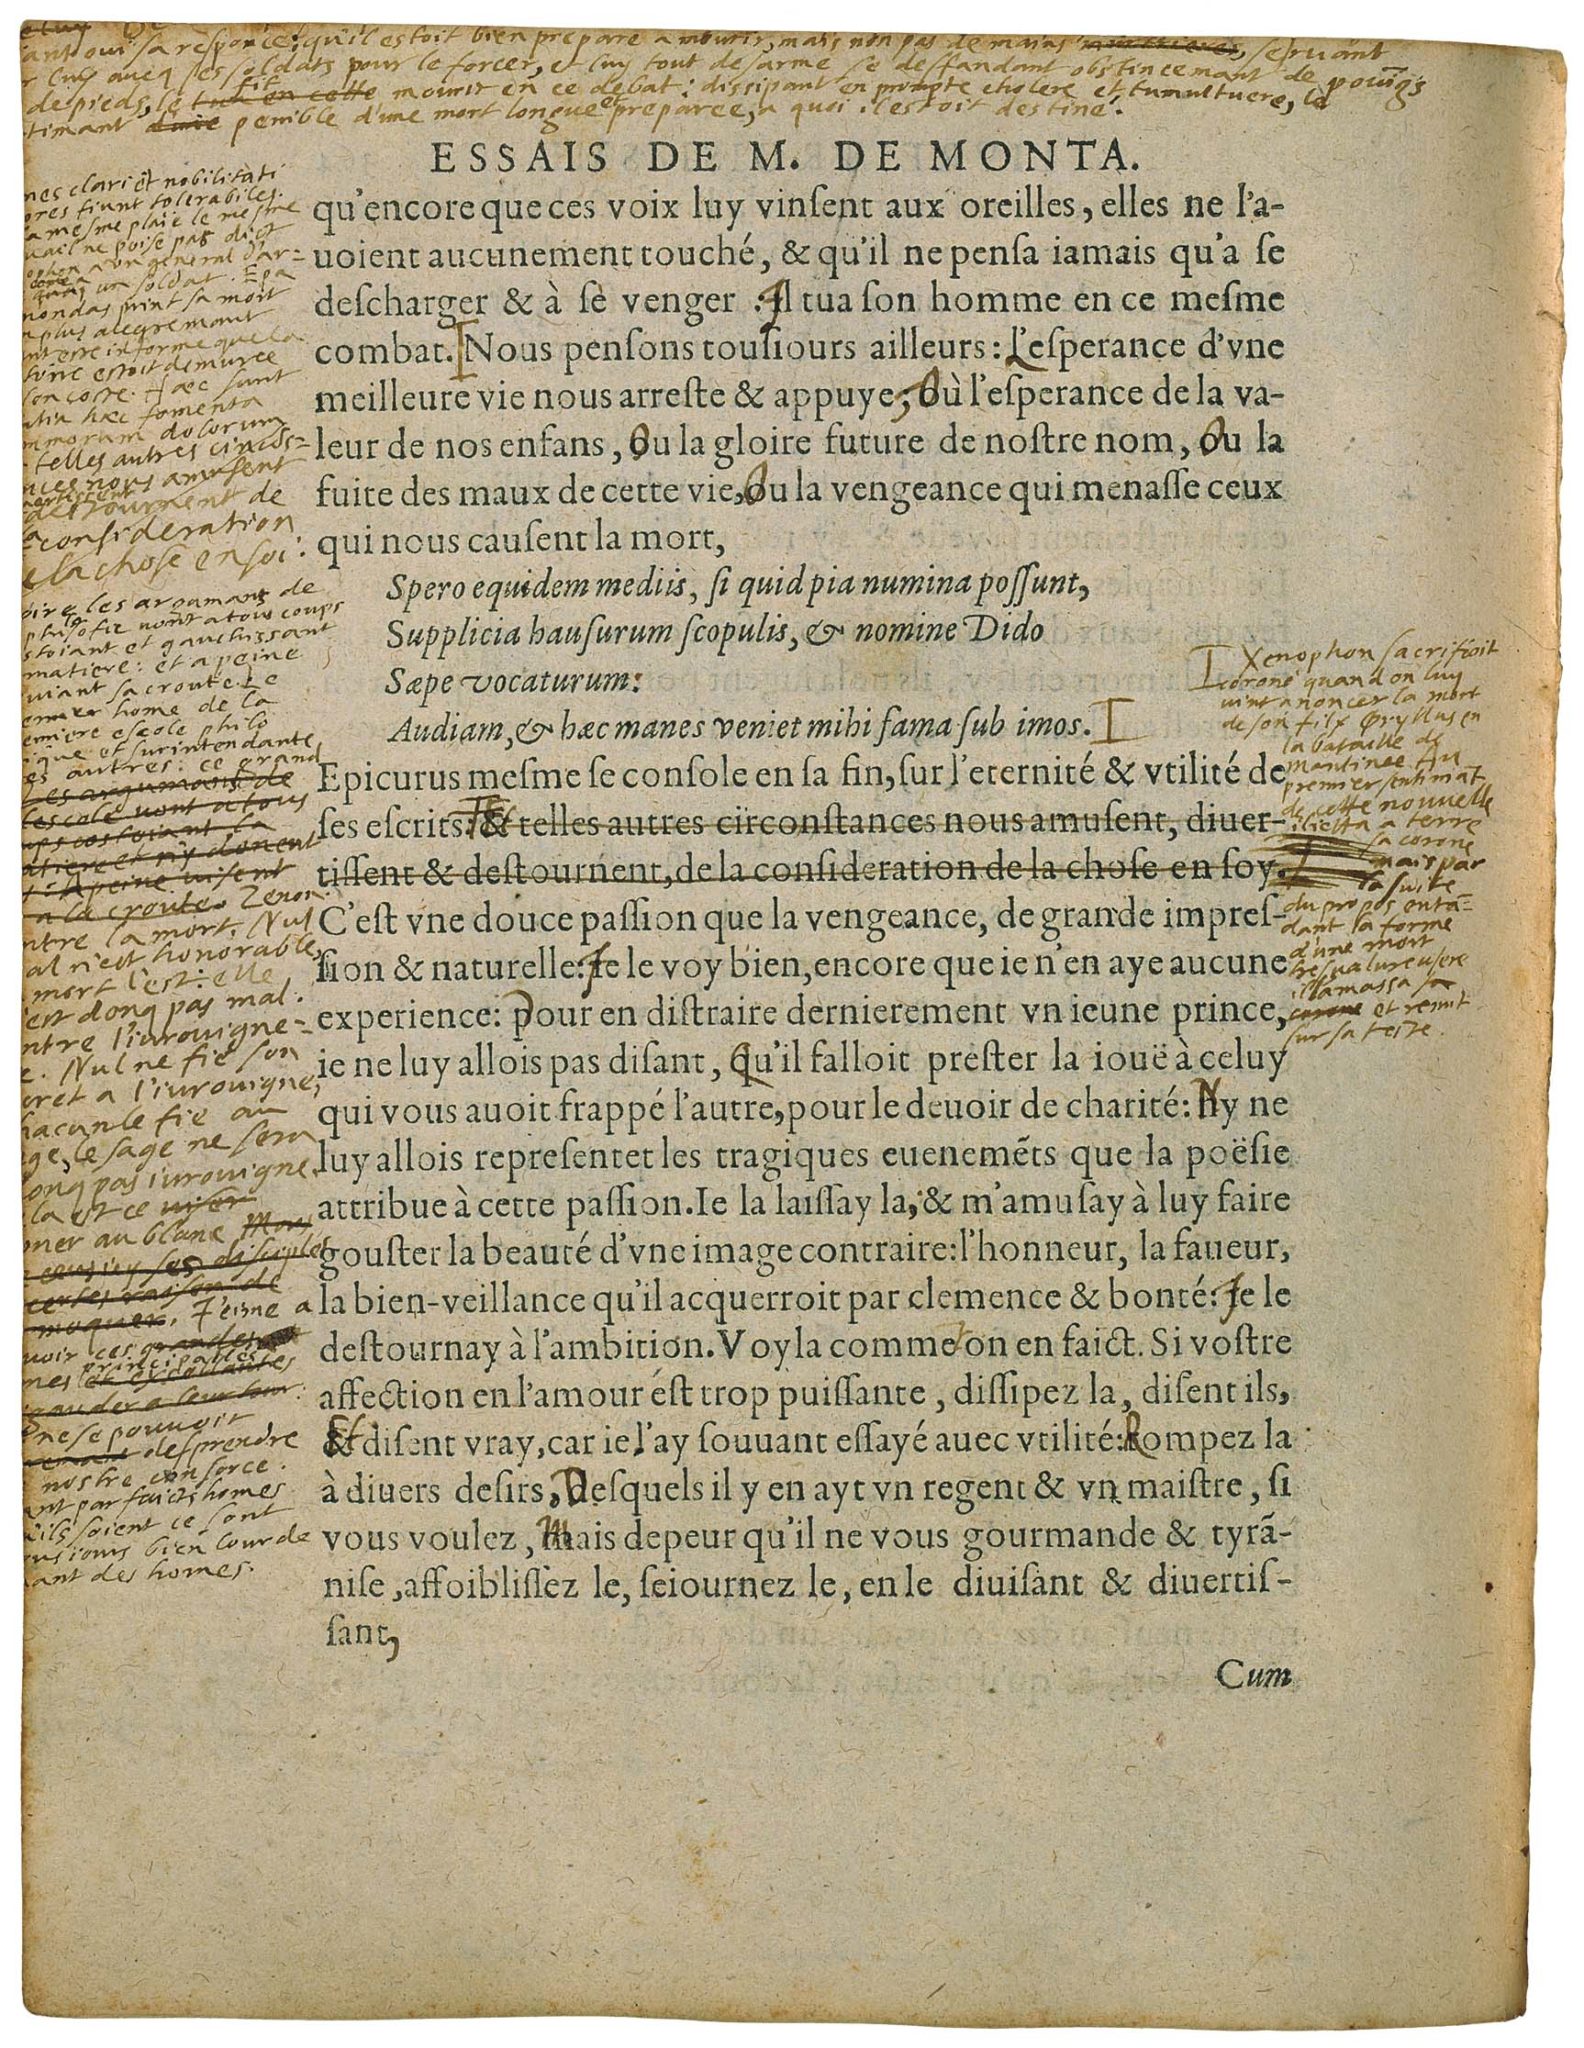 ant oui sa responce: qu'il estoit bien prepare a mourir, mais non pas de mains seruant
luy aueq ses soldats pour le forcer, et luy tout desarme se desfandant obstineemant de pouings
de pieds, le fit mourir en ce debat: dissipant en prompte cholere et tumultuere, le
timant penible d'une mort longue et preparee, a quoi il estoit destiné.
ESSAIS DE M. DE MONTA.
qu'encore que ces voix luy vinſent aux oreilles, elles ne l'a-
uoient aucunement touché, & qu'il ne penſa iamais qu'a ſe
deſcharger & à ſe venger. Il tua ſon homme en ce meſme
combat. Nous penſons touſiours ailleurs: L'eſperance d'vne
meilleure vie nous arreſte & appuye, Où l'eſperance de la va-
leur de nos enfans, Ou la gloire future de noſtre nom, Ou la
fuite des maux de cette vie, Ou la vengeance qui menaſſe ceux
qui nous cauſent la mort,
Spero equidem mediis, ſi quid pia numina poſſunt,
Supplicia hauſurum ſcopulis, & nomine Dido
Sæpe vocaturum:
Audiam, & hæc manes veniet mihi fama ſub imos.
Epicurus meſme ſe conſole en ſa fin, ſur l'eternité & vtilité de
ſes eſcrits: & telles autres circonſtances nous amuſent, diuer-
tiſſent & deſtournent, de la conſideration de la choſe en ſoy.
C'eſt vne douce paſſion que la vengeance, de grande impreſ-
ſion & naturelle: Ie le voy bien, encore que ie n'en aye aucune
experience: Pour en diſtraire dernierement vn ieune prince,
ie ne luy allois pas diſant, Qu'il falloit preſter la iouë à celuy
qui vous auoit frappé l'autre, pour le deuoir de charité: Ny ne
luy allois repreſenter les tragiques euenemẽts que la poëſie
attribue à cette paſſion. Ie la laiſſay la, & m'amuſay à luy faire
gouſter la beauté d'vne image contraire: l'honneur, la faueur,
la bien-veillance qu'il acquerroit par clemence & bonté: Ie le
deſtournay à l'ambition. Voyla comme on en faict. Si voſtre
affection en l'amour eſt trop puiſſante, diſſipez la, diſent ils,
Et diſent vray, car ie l'ay ſouuant eſſayé auec vtilité: Rompez la
à diuers deſirs, Deſquels il y en ayt vn regent & vn maiſtre, ſi
vous voulez, Mais depeur qu'il ne vous gourmande & tyrã-
niſe, affoibliſſez le, ſeiournez le, en le diuiſant & diuertiſ-
ſant,
Cum
clari et nobilitati
fiunt tolerabiles.
mesme plaie le mesme
ne poise pas dict
a un general d'ar-
un soldat. Epa
nondas print sa mort
plus alegremant
informe que la
estoit demuree
son coste. Hæc sunt
hæc fomenta
dolorum
telles autres circons-
nous amusent
destournent de
consideration
la chose en soi:
les argumans de
la philosofie vont a tous coups
et gauchissant
matiere: et a peine
sa croute. Le
home de la
escole philo
et surintendante
autres: ce grand
Zenon
contre la mort. Nul
mal n'est honorable,
mort l'est: elle
n'est donq pas mal.
contre l'iurouigne-
Nul ne fie son
a l'iurouigne,
chacun le fie au
sage, le sage ne sera
donq pas iurouigne.
cela est ce
au blanc
J'eime a
voir ces
principales
ne se pouuoir
desprendre
nostre consorce.
parfaicts homes
qu'ils soient ce sont
tousiours bien lourde
mant des homes.
Xenophon sacrifioit
coroné quand on luy
vint anoncer la mort
de son filx Gryllus en
la bataille de
Mantinee. Au
premier sentimant
de cette nouuelle
il ietta a terre
sa corone
mais par
la suite
du propos enta-
dant la forme
d'une mort
tresualureuse
il amassa sa
corone et remit
sur sa teste.